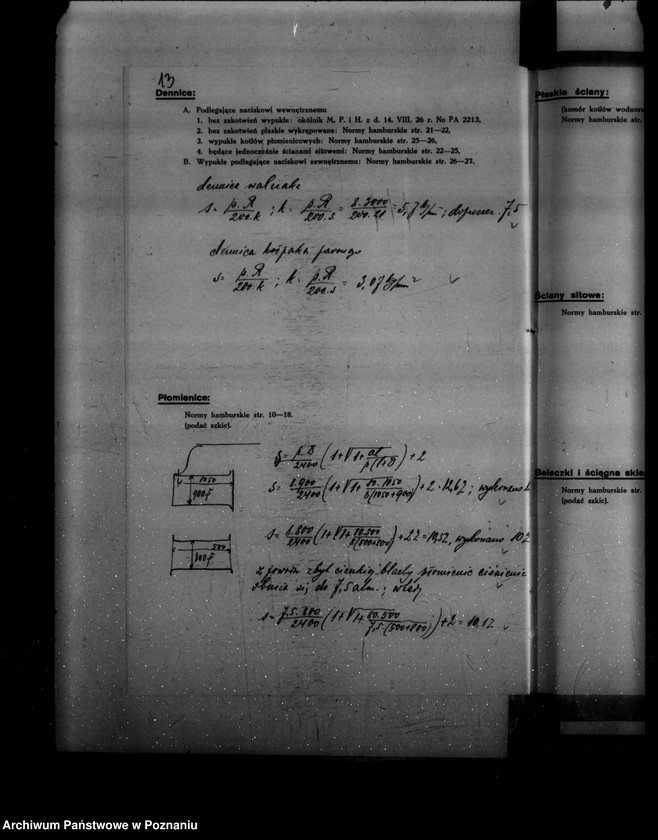 13
Dennice:
A. Podlegające naciskowi wewnętrznemu
1. bez zakotwień wypukłe: okólnik M. P. i H. z d. 14. VIII. 26 r. No PA 2213,
2. bez zakotwień płaskie wykrępowane: Normy hamburskie str. 21—22,
3. wypukłe kotłów płomienicowych: Normy hamburskie str. 25—26,
4. będące jednocześnie ścianami sitowemi: Normy hamburskie str. 22—25,
B. Wypukłe podlegające naciskowi zewnętrznemu: Normy hamburskie str. 26—27.
dennice walczaka
s = p.R / 200.k ; k = p.R / 200.s = 5,7 kg/mm²; 7,5
dennica kołpaka parowego
s = p.R / 200.k ; k = p.R / 200.s = 3,07 kg/mm²
Płomienice:
Normy hamburskie str. 10—18.
(podać szkic).
s = p.D / 2400 (1+√1+ al / p(l+D)) +2
1050
900
s = 8.900 / 2400 (1+√1+ 80.1050 / 8(1050+900)) +2
500
800
s = 8.800 / 2400 (1+√1+ 80.500 / 8(500+800)) +2 wykonano
z zbyt cienkiej blachy płomienic ciśnienie
się do 7,5 atm.; wtedy
s = 7,5.800 / 2400 (1+√1+ 80.500 / 7,5.(500+800)) +2 =
Płaskie ściany:
(komór kotłów
Normy hamburskie str.
Ściany sitowe:
Normy hamburskie str.
Beleczki i ścięgna
Normy hamburskie str.
(podać szkic).
Archiwum Państwowe w Poznaniu